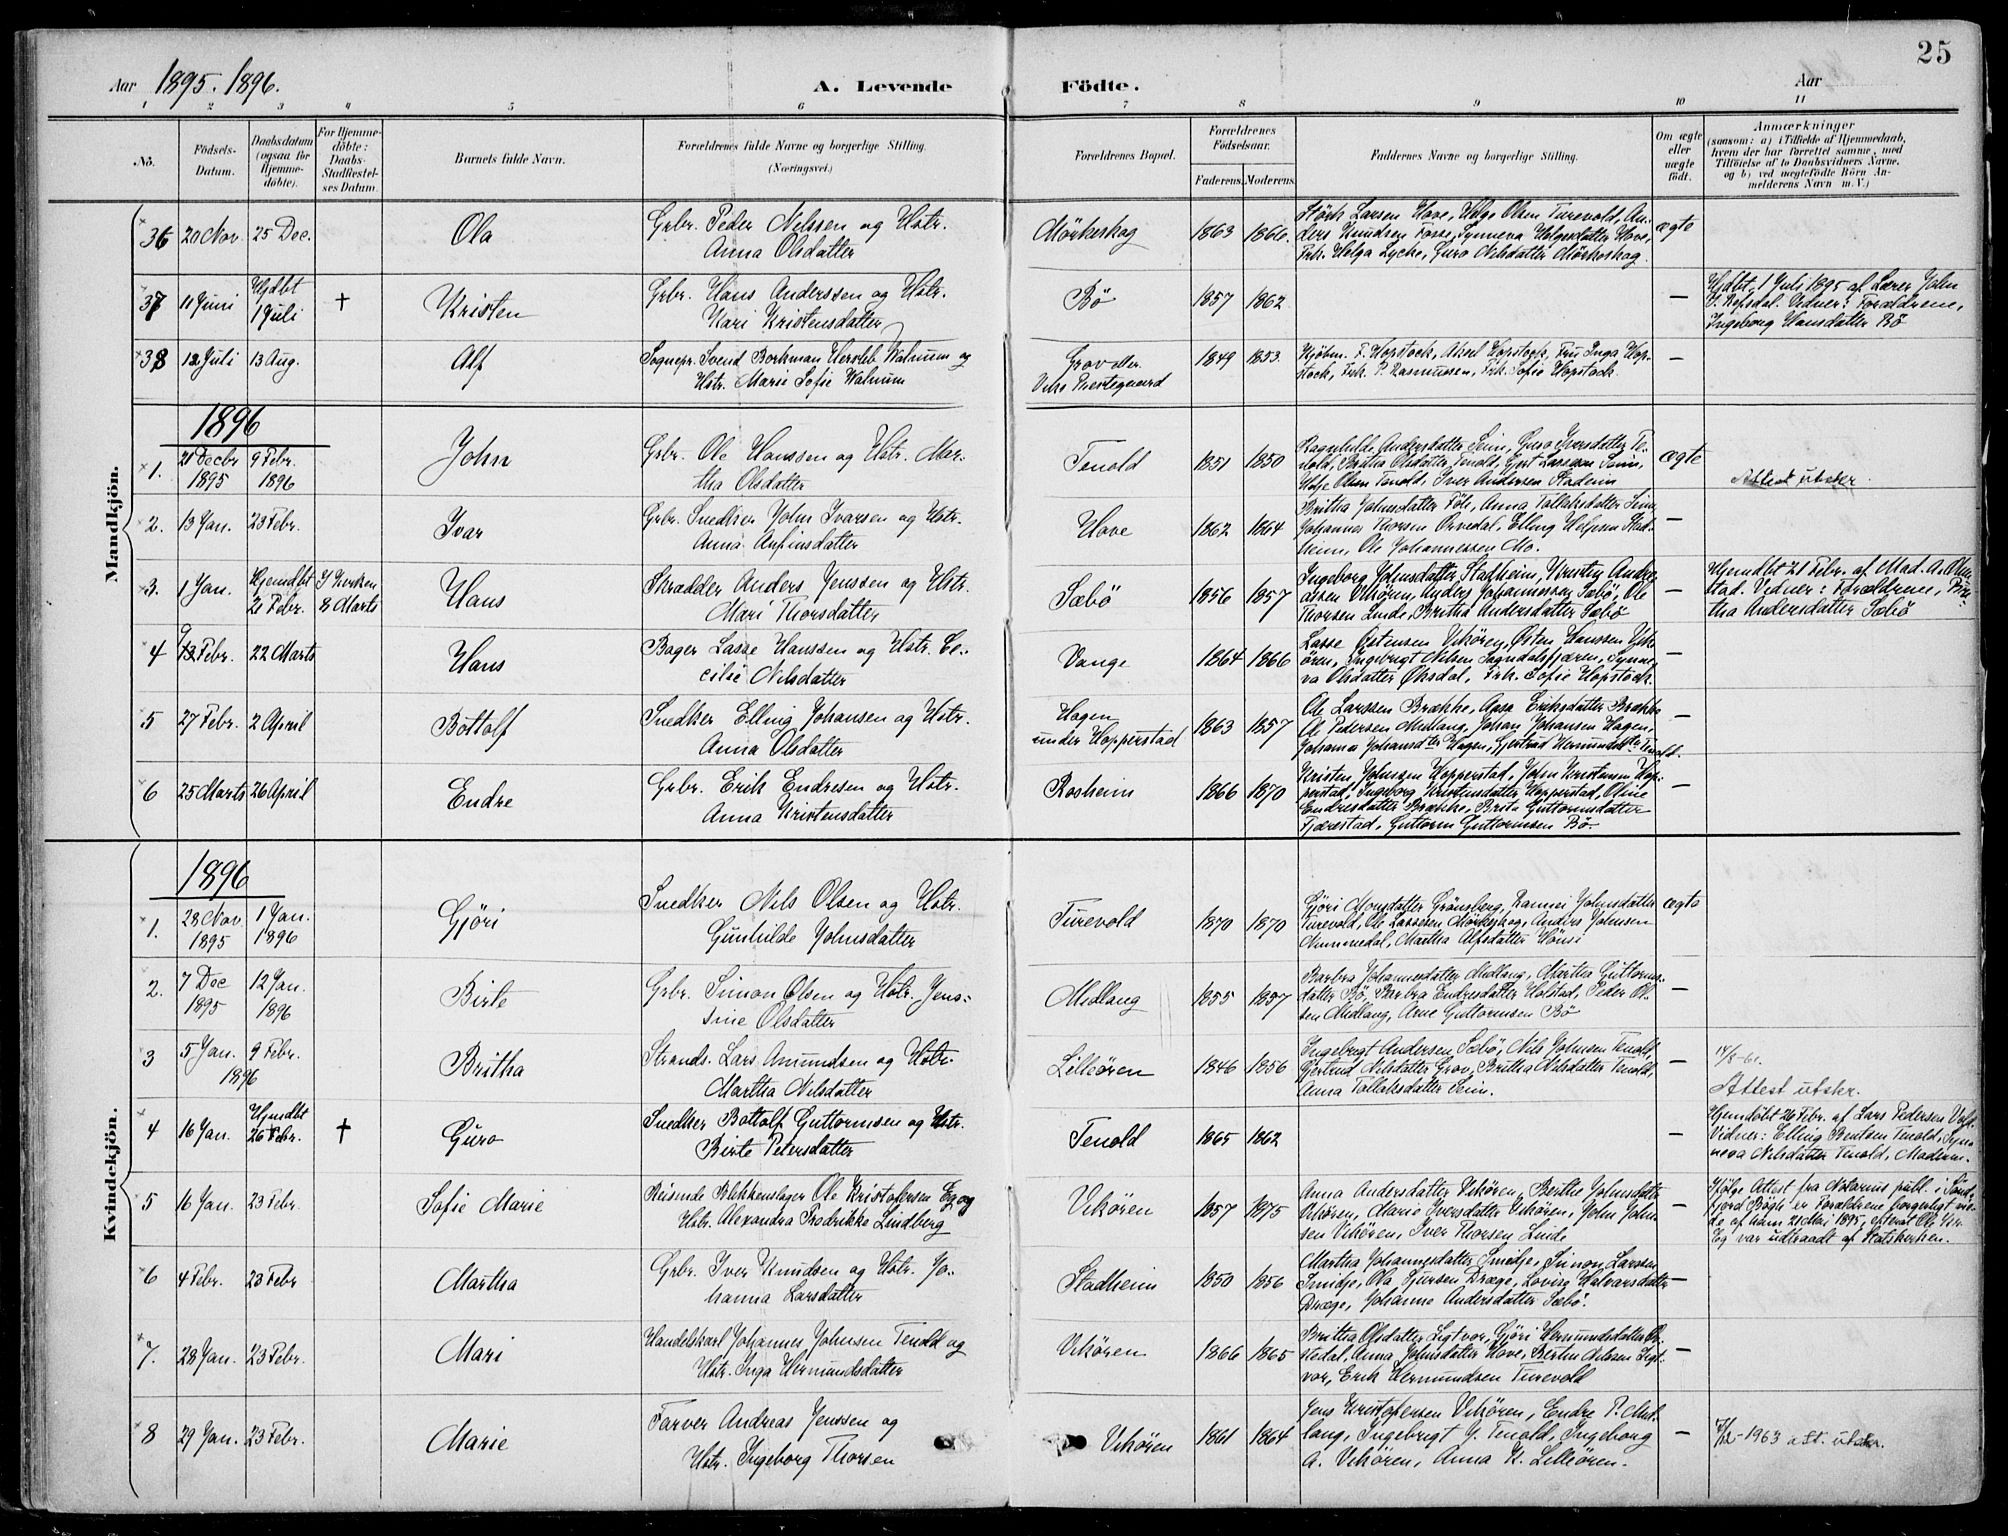 25
Aar 1895. 1896. A. Levende Födte. Aar
1 2 3 4 5 6 7 8 9 10 11
No. Födsels-Datum. Daabsdatum (ogsaa for Hjemmedöbte). For Hjemmedöbte: Daabs-Stadfæstelses Datum. Barnets fulde Navn. Forældrenes fulde Navne og borgerlige Stilling. (Næringsvei.) Forældrenes Bopæl. Forældrenes Födselsaar. Faderens. Moderens. Faddernes Navne og borgerlige Stilling. Om ægte eller uægte födt. Anmærkninger (saasom: a) i Tilfælde af Hjemmedaab, hvem der har forrettet samme, med Tilföielse af to Daabsvidners Navne, og b) ved uægtefödte Börn Anmelderens Navn m. V.)
Mandkjön.
36 20 Nov. 25 Dec. Ola Grbr. Peder Nelssen og Hstr. Anna Olsdatter Mörkeskog 1863 1866. Störk Larsen Hove, Helge Olsen Turevold, Anders Knudsen Fosse, Synneva Helgesdatter Hove, Frk. Helga Lycke, Guro Nilsdatter Mörkeskog ægte
37 11 Juni Hjdbt 1 Juli † Kristen Grbr. Hans Anderssen og Hstr. Kari Kristensdatter Bö 1857 1862 — Hjdbt. 1 Juli 1895 af Lærer John J. Refsdal. Vidner: Forældrene, Ingeborg Hansdatter Bö
38 12 Juli 13 Aug. Alf Sognepr. Svend Borkman Hersleb Walnum og Hstr. Marie Sofie Walnum Grov eller Viks Prestegaard 1849 1853. Kjöbm. F. Hopstock, Aksel Hopstock, Fru Inga Hopstock, Frk. P. Rasmussen, Frk. Sofie Hopstock. —
1896
1. 21 Decbr 1895 9 Febr. 1896 John Grbr. Ole Hanssen og Hstr. Martha Olsdatter Tenold 1851 1850 Ragnhilde Andersdatter Seim, Guro Iversdatter Tenold, Britha Olsdatter Tenold, Gjert Larssen Seim, Hofe Olsen Tenold, Iver Andersen Stadeim ægte Attest utster.
2. 13 Jan. 23 Febr. Ivar Grbr. Snedker John Ivarsen og Hstr. Anna Anfinsdatter Hove 1862 1864 Britha Johnsdatter Föle, Anna Tollaksdatter Seim, Johannes Thorsen Orvedal, Elling Helgesen Stadheim, Ole Johannessen Mo. —
3. 1 Jan. Hjemdbt 21 Febr. I Kirken 8 Marts Hans Skrædder Anders Jenssen og Hstr. Mari Thorsdatter Sæbö 1856 1857 Ingeborg Johnsdatter Stadheim, Kristen Anderssen Vikören, Anders Johannessen Sæbö, Ole Thorsen Linde, Britha Andersdatter Sæbö — Hjemdbt 21 Febr. af Mad. A. Ohnstad. Vidner: Forældrene, Britha Andersdatter Sæbö
4 9 12 Febr. 22 Marts Hans Bager Lasse Hanssen og Hstr. Cecilie Nilsdatter Vange 1864 1866 Lasse Östensen Vikören, Östen Hanssen Vikören, Ingebrigt Nilsen Sogndalsfjæren, Synneva Olsdatter Öksdal, Frk. Sofie Hopstock. —
5 27 Febr. 2 April Bottolf Snedker Elling Johansen og Hstr. Anna Olsdatter Hagen under Hopperstad 1863 1857 Ole Larssen Brække, Agsa Eriksdatter Brække, O. Pedersen Midlang, Johan Johansen Hagen, Johanna Johansdter Hagen, Gjertrud Hermundsdtr Tenold. —
6 25 Marts 26 April Endre Grbr. Erik Endresen og Hstr. Anna Kristensdatter Rosheim 1866 1870 Kristen Johnsen Hopperstad, John Kristensen Hopperstad, Ingeborg Kristensdatter Hopperstad, Oline Endresdatter Brække, Brita Guttormsdatter Fjærestad, Guttorm Guttormsen Bö. —
Kvindekjön.
1896
1. 28 Nov 1895 1 Jan. 1896 Gjöri Snedker Nils Olsen og Hstr. Gunhilde Johnsdatter Turevold 1870 1870 Gjöri Monsdatter Grönsberg, Rannei Johnsdatter Turevold, Ole Lassesen Mörkeskog, Anders Johnsen Nummedal, Martha Alfsdatter Hönsi ægte
2. 7 Dec 1895 12 Jan. 1896 Birte Grbr. Simon Olsen og Hstr. Jensine Olsdatter Midlang 1855 1857 Barbra Johannesdatter Midlang, Martha Guttormsdatter Bö, Barbra Endresdatter Holstad, Peder Olsen Midlang, Arne Guttormsen Bö —
3 5 Jan. 9 Febr. 1896 Britha Strands. Lars Amundsen og Hstr. Martha Nilsdatter Lilleören 1846 1856 Ingebrigt Andersen Sæbö, Nils Johnsen Tenold, Gjertrud Nilsdatter Grov, Britha Nilsdatter Tenold, Anna Tollaksdatter Seim. — 14/8-61. Attest utster.
4 16 Jan. Hjemdbt 26 Febr. † Guro Snedker Bottolf Guttormsen og Hstr. Birte Petersdatter Tenold 1865 1862 — Hjemdöbt 26 Febr. af Lars Pedersen Voll. Vidner: Elling Bentsen Tenold, Synneva Nilsdatter Tenold, Madicin.
5 16 Jan. 23 Febr. Sofie Marie Reisende Blikkenslager Ole Kristofersen Eg og Hstr. Alexandra Fredrikke Lindberg Vikören 1857 1875 Anna Andersdatter Vikören, Berthe Johnsdatter Vikören, Marie Iversdatter Vikören, John Johnsen Vikören, Iver Thorsen Linde — Ifölge Attest fra Notarius publ. i Söndfjord Bögte er Forældrene borgerligt viede af ham 21 Mai 1895, efterat Ole Kr. Eg var udtraadt af Statskirken.
6 4 Febr. 23 Febr Martha Grbr. Iver Knudsen og Hstr. Johanna Larsdatter Stadheim 1850 1856 Martha Johannesdatter Smidje, Simon Larssen Smidje, Ola Sjursen Dræge, Lovise Halvarsdatter Dræge, Johanne Andersdatter Sæbö. —
7. 28 Jan. 23 Febr. Mari Handelskarl Johannes Johnsen Tenold og Hstr. Inga Hermundsdatter Vikören 1866 1865 Britha Olsdatter Ligtvor, Gjöri Hermundsdatter Orvedal, Anna Johnsdatter Hove, Bertin Nilssen Ligtvor, Erik Hermundsen Turevold —
8 29 Jan. 23 Febr. Marie Farver Andreas Jenssen og Hstr. Ingeborg Thorsen Vikören 1861 1864 Jens Kristofersen Vikören, Endre P. Midlang, Ingebrigt J. Tenold, Ingeborg A. Vikören, Anna K. Lilleören. — /12-1963 att. utster.